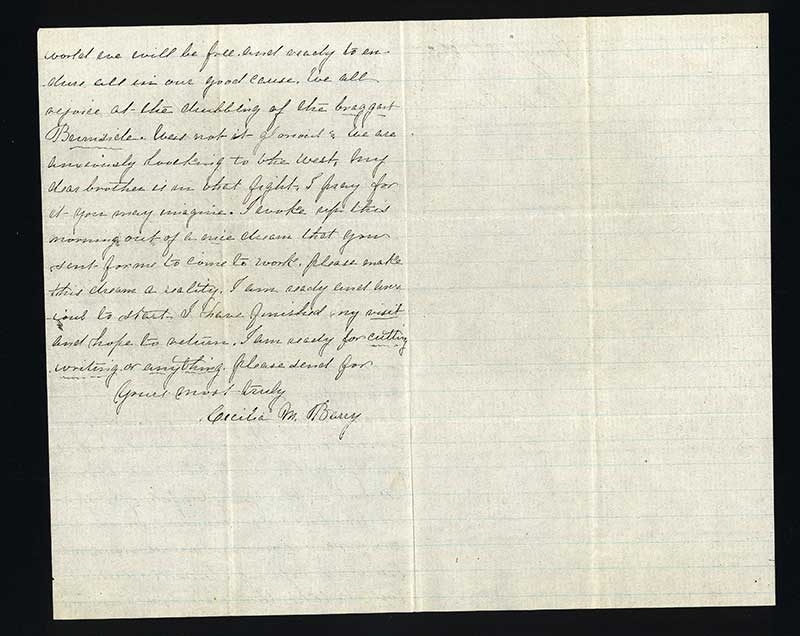 world we will be free and ready to en-
dure all in our good cause. We all
rejoice at the drubbing of the braggart
Burnside. Was not it glorious? We are
anxiously looking to the West, my
dear brother is in that fight, I pray for
it you may imagine. I awoke up this
morning out of a nice dream that you
sent for me to come to work. Please make
this dream a reality. I am ready and anx-
ious to start. I have finished my visit
and hope to return. I am ready for cutting
writing or anything. Please send for
Yours most truly
Cecilia M. Barry